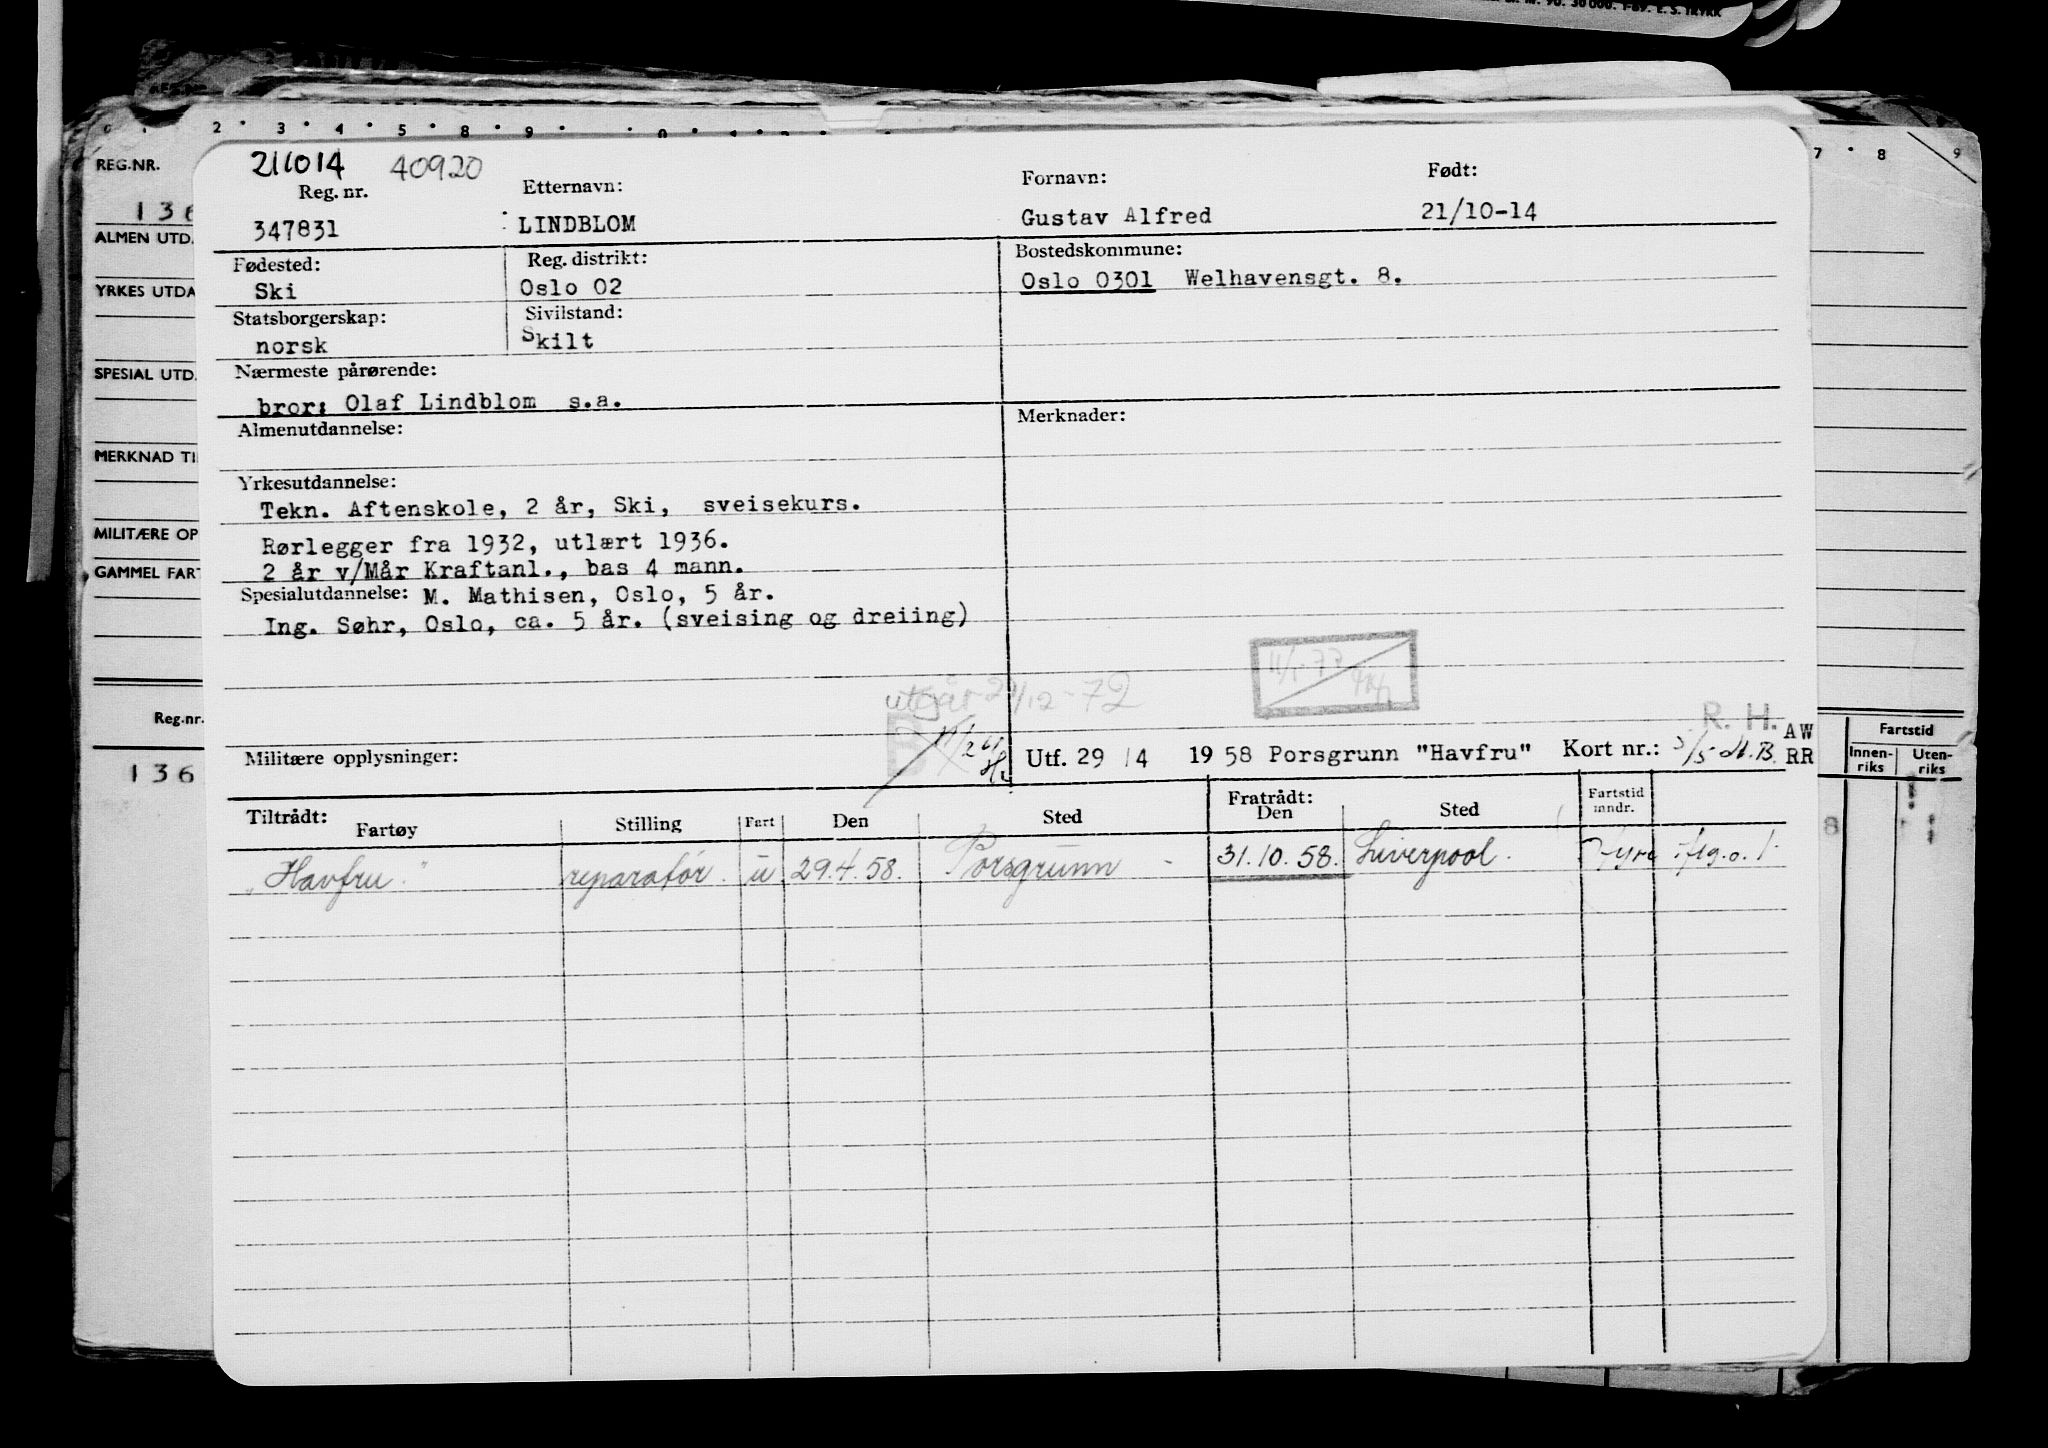 Nr. 90. 30 000. 1-69. E. S. TRYKK
2 3 4 5 8 9
7 8 9
REG.NR.
136
ALMEN UTD.
YRKES UTDA
SPESIAL UTD.
MERKNAD TI
MILITÆRE OP
GAMMEL FART
Reg.nr.
136
211014 40920
Reg. nr. Etternavn: Fornavn: Født:
347831 LINDBLOM Gustav Alfred 21/10-14
Fødested: Reg. distrikt: Bostedskommune:
Ski Oslo 02 Oslo 0301 Welhavensgt. 8.
Statsborgerskap: Sivilstand:
norsk Skilt
Nærmeste pårørende:
bror: Olaf Lindblom s.a.
Almenutdannelse: Merknader:
Yrkesutdannelse:
Tekn. Aftenskole, 2 år, Ski, sveisekurs.
Rørlegger fra 1932, utlært 1936.
2 år v/Mår Kraftanl., bas 4 mann.
Spesialutdannelse: M. Mathisen, Oslo, 5 år.
Ing. Søhr, Oslo, ca. 5 år. (sveising og dreiing)
utgår 29/12-72
R. H. AW
Militære opplysninger: Utf. 29 /4 1958 Porsgrunn "Havfru" Kort nr.: 5/5 M.B. RR
Tiltrådt: Fratrådt:
Fartøy Stilling Fart Den Sted Den Sted Fartstid mndr.
"Havfru." reparatør. u 29.4.58. Porsgrunn - 31.10.58. Liverpool.
Fartstid
Innen-riks Uten-riks
8